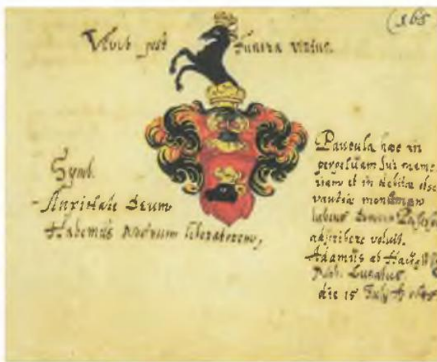 (165
Vivit post funera virtus.
Symb.
Auxiliate Deum
Habemus nostrum liberatorem,
Paucula hæc in
perpetuam sui memo
riam et in debitæ obser
vantiæ
adscribere voluit.
Adamus ab
Nob. Lusatus
die 15 July A̅o